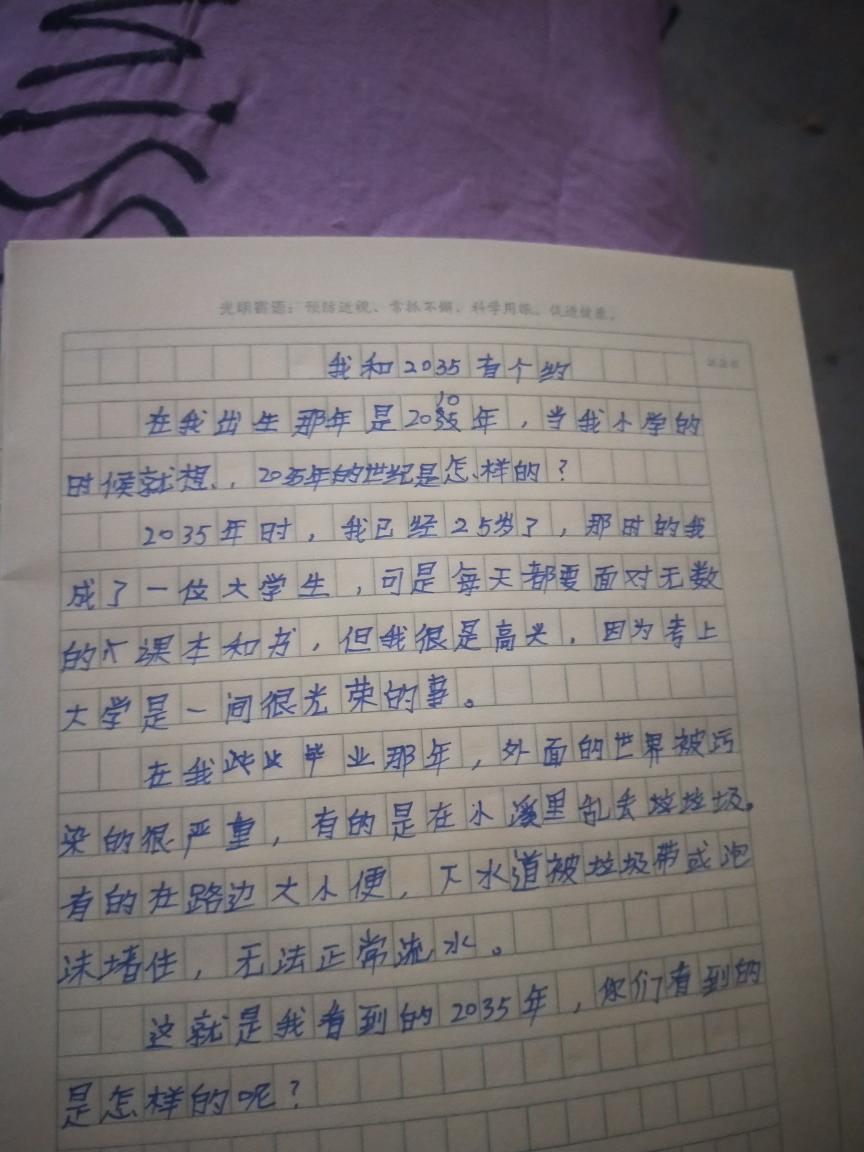 Miss
光明寄语：预防近视、常抓不懈、科学用眼、促进健康。
我和2035有个约
在我出生那年是2010年，当我小学的
时候就想，2035年的世纪是怎样的？
2035年时，我已经25岁了，那时的我
成了一位大学生，可是每天都要面对无数
的课本和书，但我很是高兴，因为考上
大学是一间很光荣的事。
在我毕业那年，外面的世界被污
染的很严重，有的是在小溪里乱丢垃圾。
有的在路边大小便，下水道被垃圾带或泡
沫堵住，无法正常流水。
这就是我看到的2035年，你们看到的
是怎样的呢？